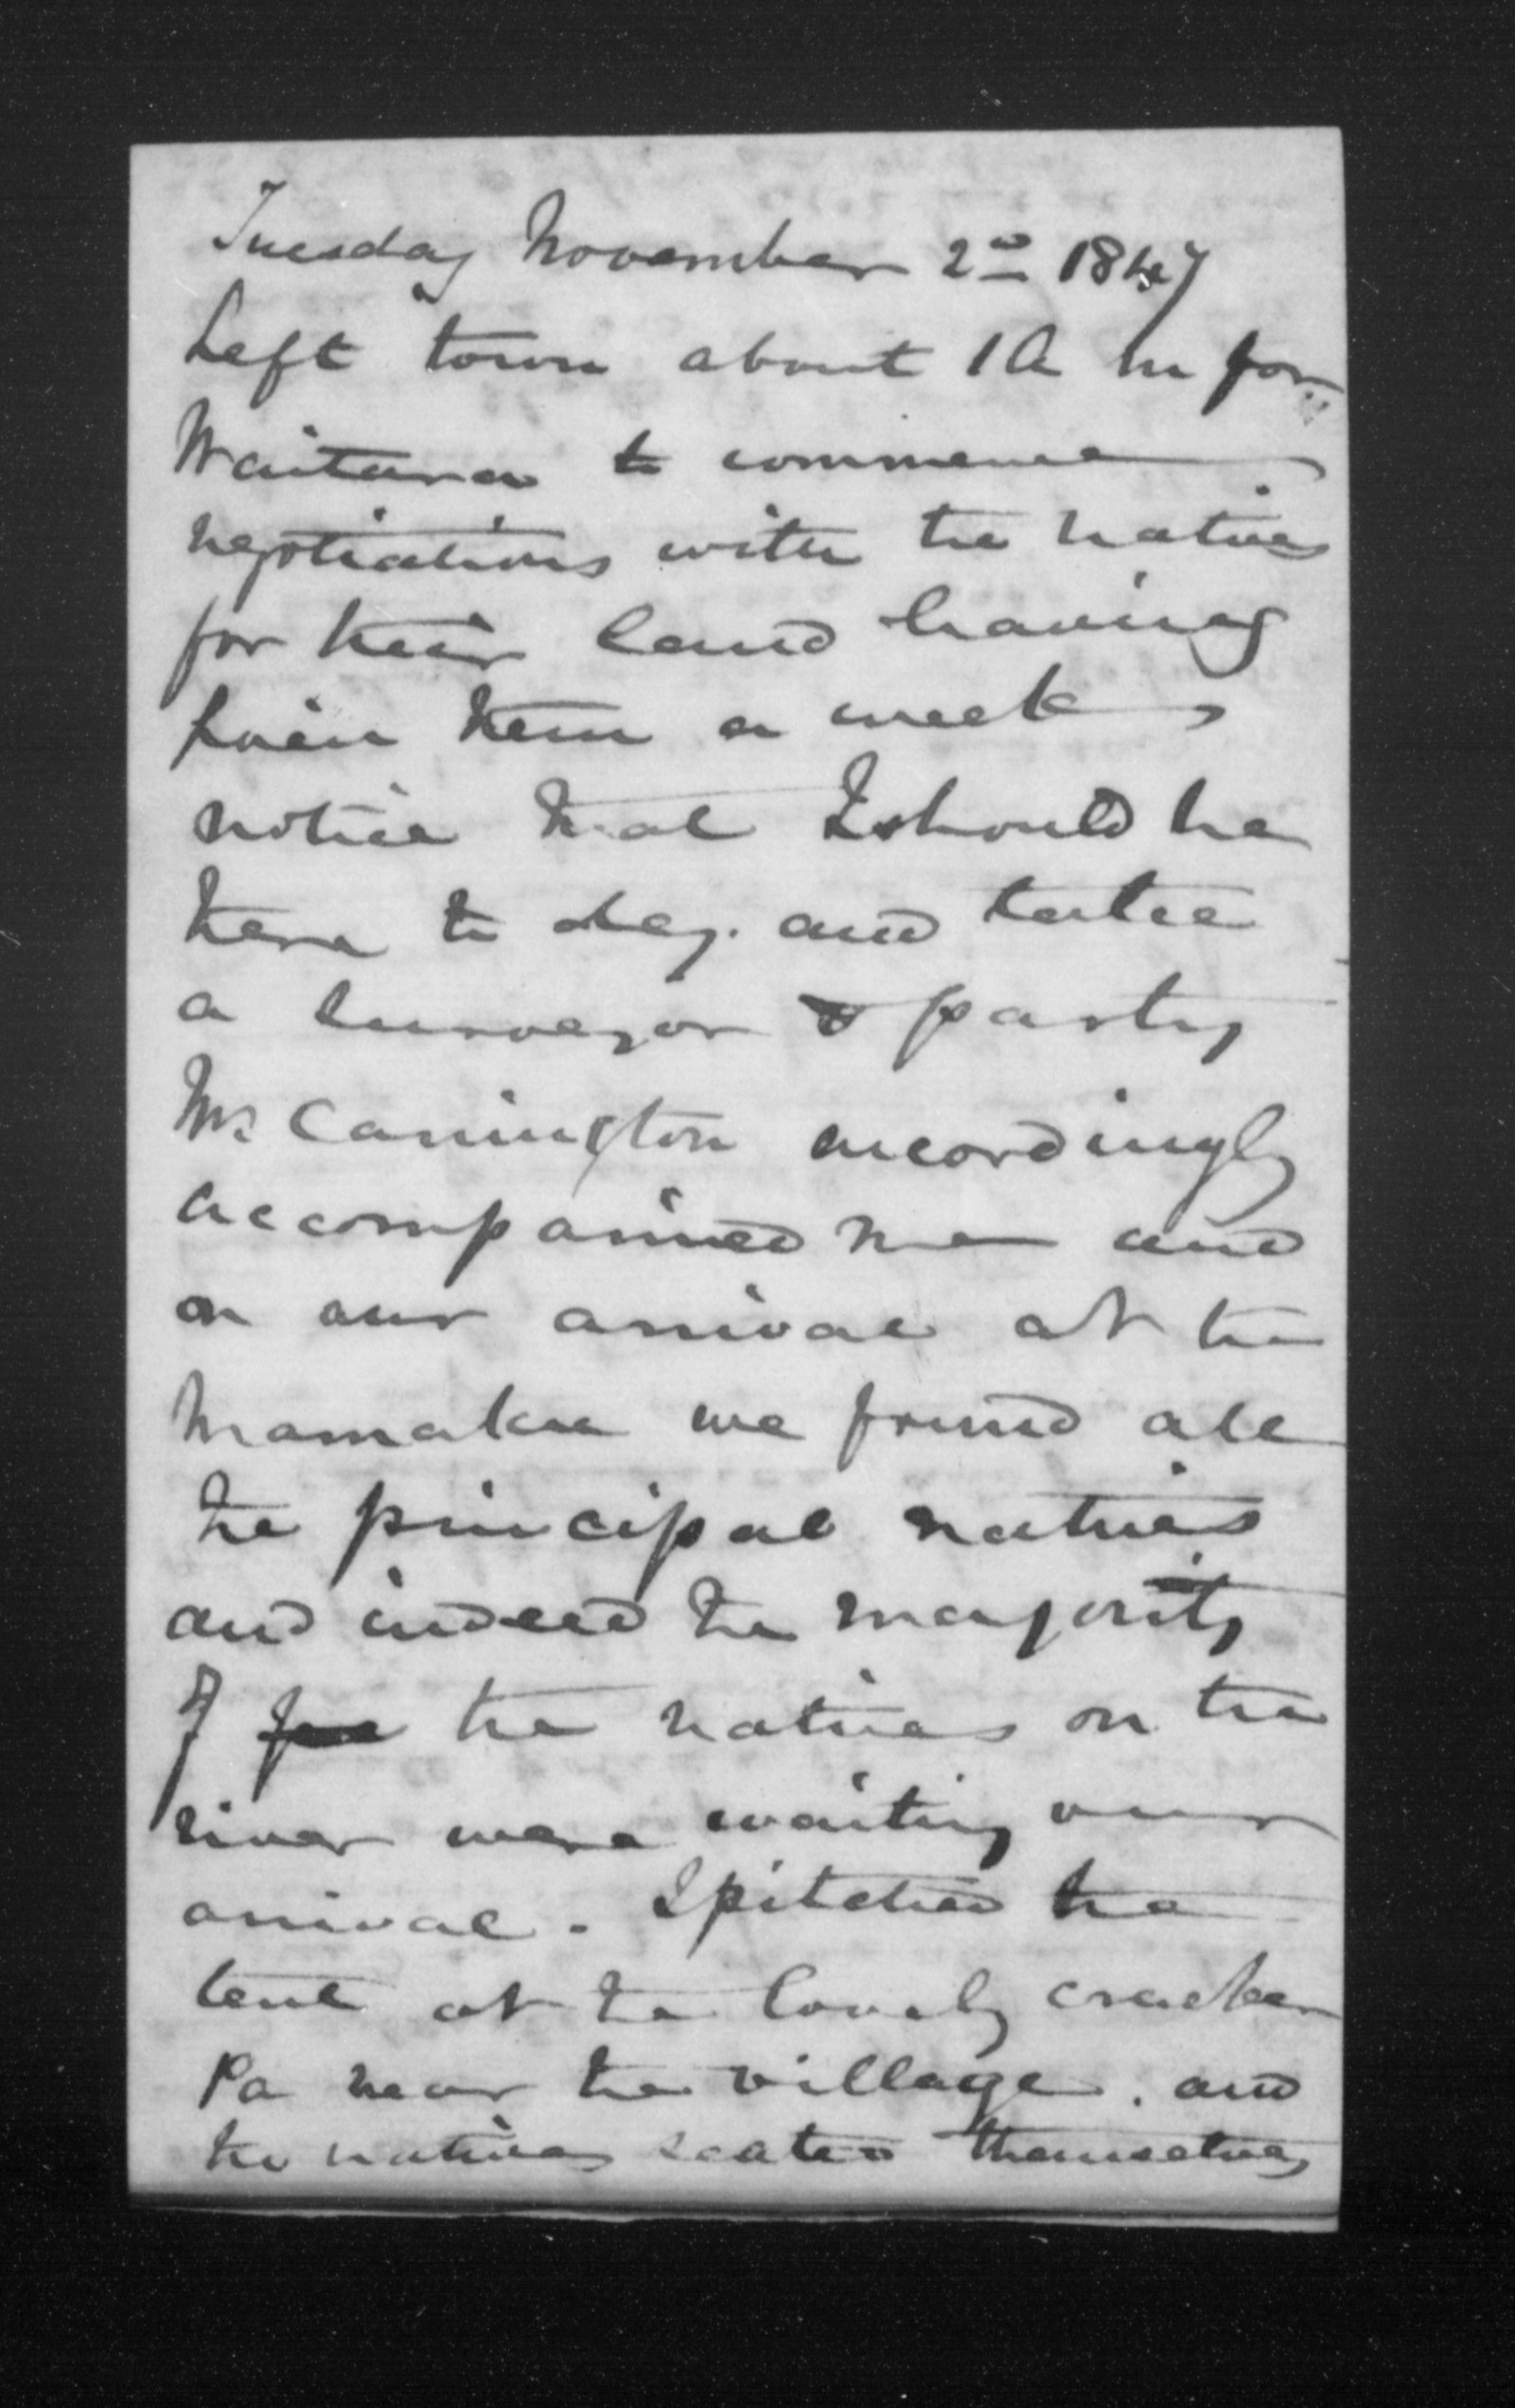 Tuesday November 2nd 1847
Left town about 10 A m for
Waitara to commence
negotiations with the natives
for their land having
given them a weeks
notice that I should be
there to day. and
a surveyor & party
Mr Carrington accordingly
accompanied me and
on our arrival at the
Mamaku we found all
the principal natives
and indeed the majority
of the natives on the
river were waiting our
arrival. I pitched the
tent at the lonely cracker
Pa near the village. and
the natives seated themselves